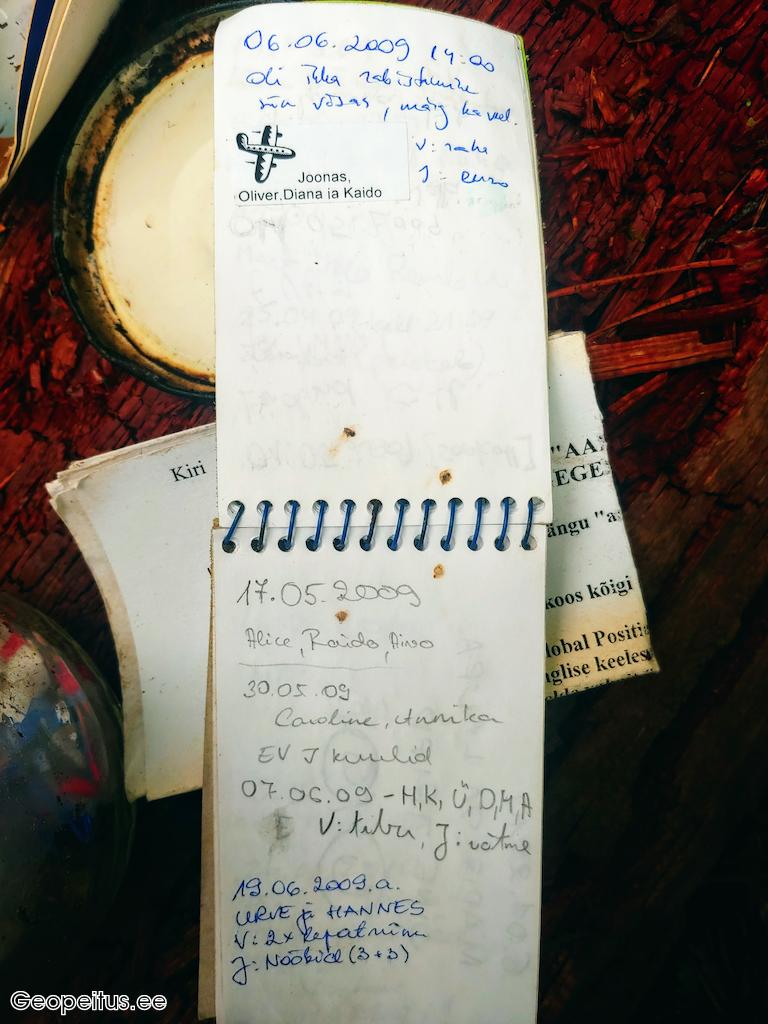 06.06.2009 14:00
oli ikka rabistamine
siin võsas, märg ka veel.
V: raha
J: euro
Joonas,
Oliver,Diana ja Kaido
Kiri
"AA
EGE
ängu "a
koos kõigi
lobal Positi
nglise keeles
17.05.2009
Alice, Raido, Aivo
30.05.09
Caroline, Annika
EV J kuulid
07.06.09 - H,K, Ü, D,M,A
V: tibu, J: võtme
19.06.2009.a.
URVE ja HANNES
V: 2x
J: Nööbid (3+3)
Geopeitus.ee